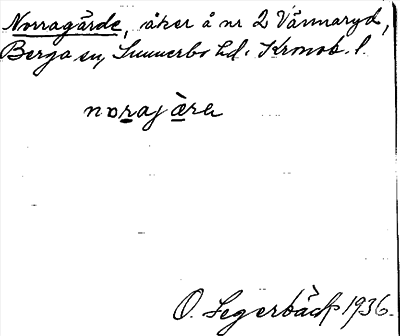 Norragärde, åker å nr 2 Vännaryd,
Berga sn, Sunnerbo hd. Kronob. l.
norajæ̀ra
O. Segerbäck 1936.